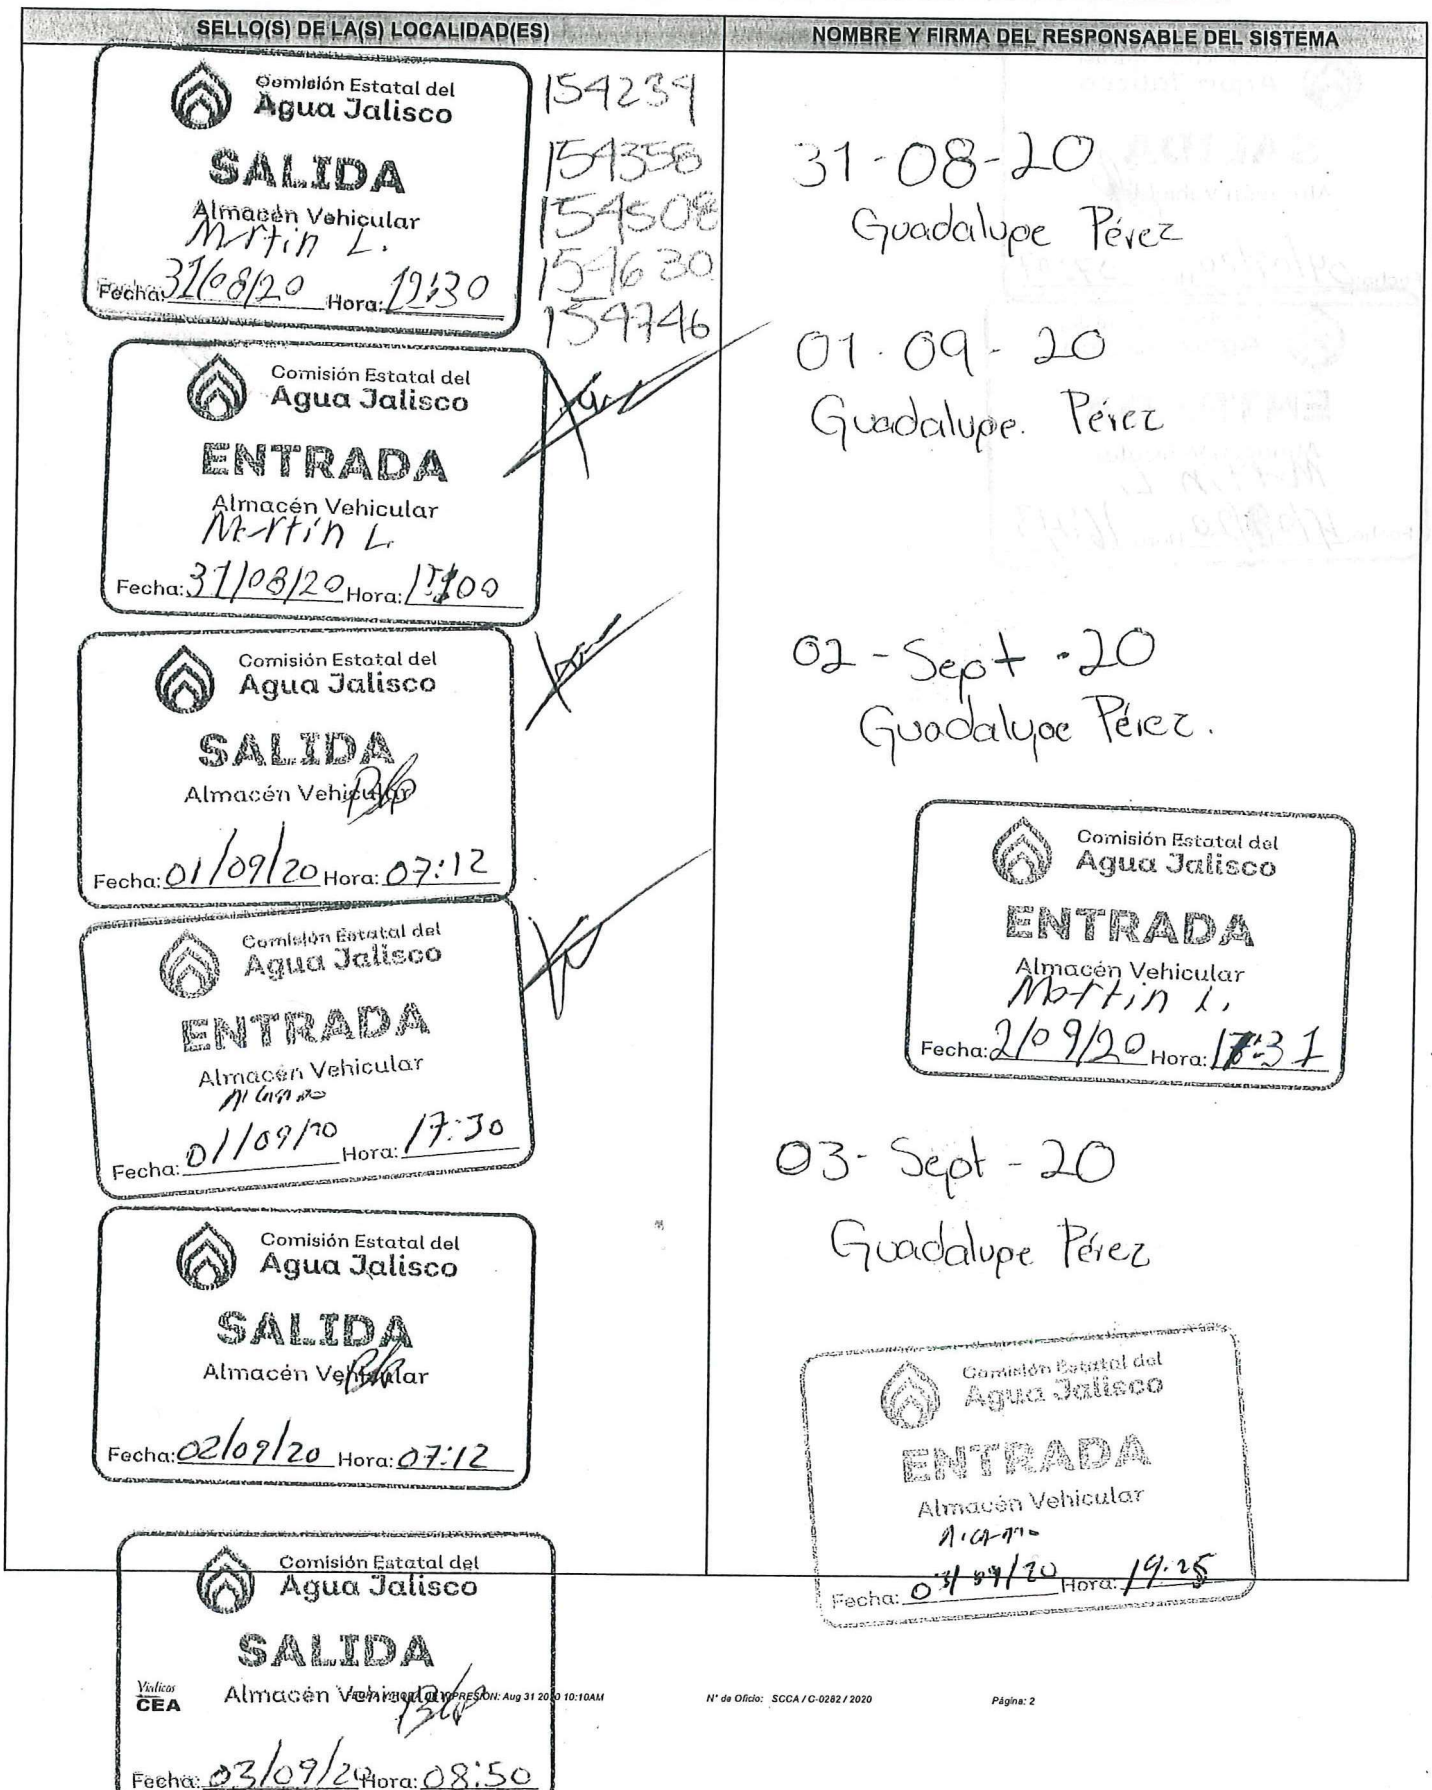 SELLO(S) DE LA(S) LOCALIDAD(ES)
NOMBRE Y FIRMA DEL RESPONSABLE DEL SISTEMA
Comisión Estatal del
Agua Jalisco
SALIDA
Almacén Vehicular
Martin L.
Fecha: 31/08/20 Hora: 12:30
154239
154358
154508
154630
154746
Comisión Estatal del
Agua Jalisco
ENTRADA
Almacén Vehicular
Martin L.
Fecha: 31/08/20 Hora:
Comisión Estatal del
Agua Jalisco
SALIDA
Almacén Vehicular
Fecha: 01/09/20 Hora: 07:12
Comisión Estatal del
Agua Jalisco
ENTRADA
Almacén Vehicular
Fecha: 01/09/20 Hora: 17:30
Comisión Estatal del
Agua Jalisco
SALIDA
Almacén Vehicular
Fecha: 02/09/20 Hora: 07:12
Comisión Estatal del
Agua Jalisco
SALIDA
Almacén Vehicular
Fecha: 03/09/20 Hora: 08:50
31-08-20
Guadalupe Pérez
01-09-20
Guadalupe. Pérez
02-Sept-20
Guadalupe Pérez.
Comisión Estatal del
Agua Jalisco
ENTRADA
Almacén Vehicular
Martin L.
Fecha: 2/09/20 Hora: 17:31
03-Sept-20
Guadalupe Pérez
Comisión Estatal del
Agua Jalisco
ENTRADA
Almacén Vehicular
Fecha: 03/09/20 Hora: 19:25
Viáticos
CEA
FECHA Y HORA DE IMPRESIÓN: Aug 31 2020 10:10AM
N° de Oficio: SCCA / C-0282 / 2020
Página: 2